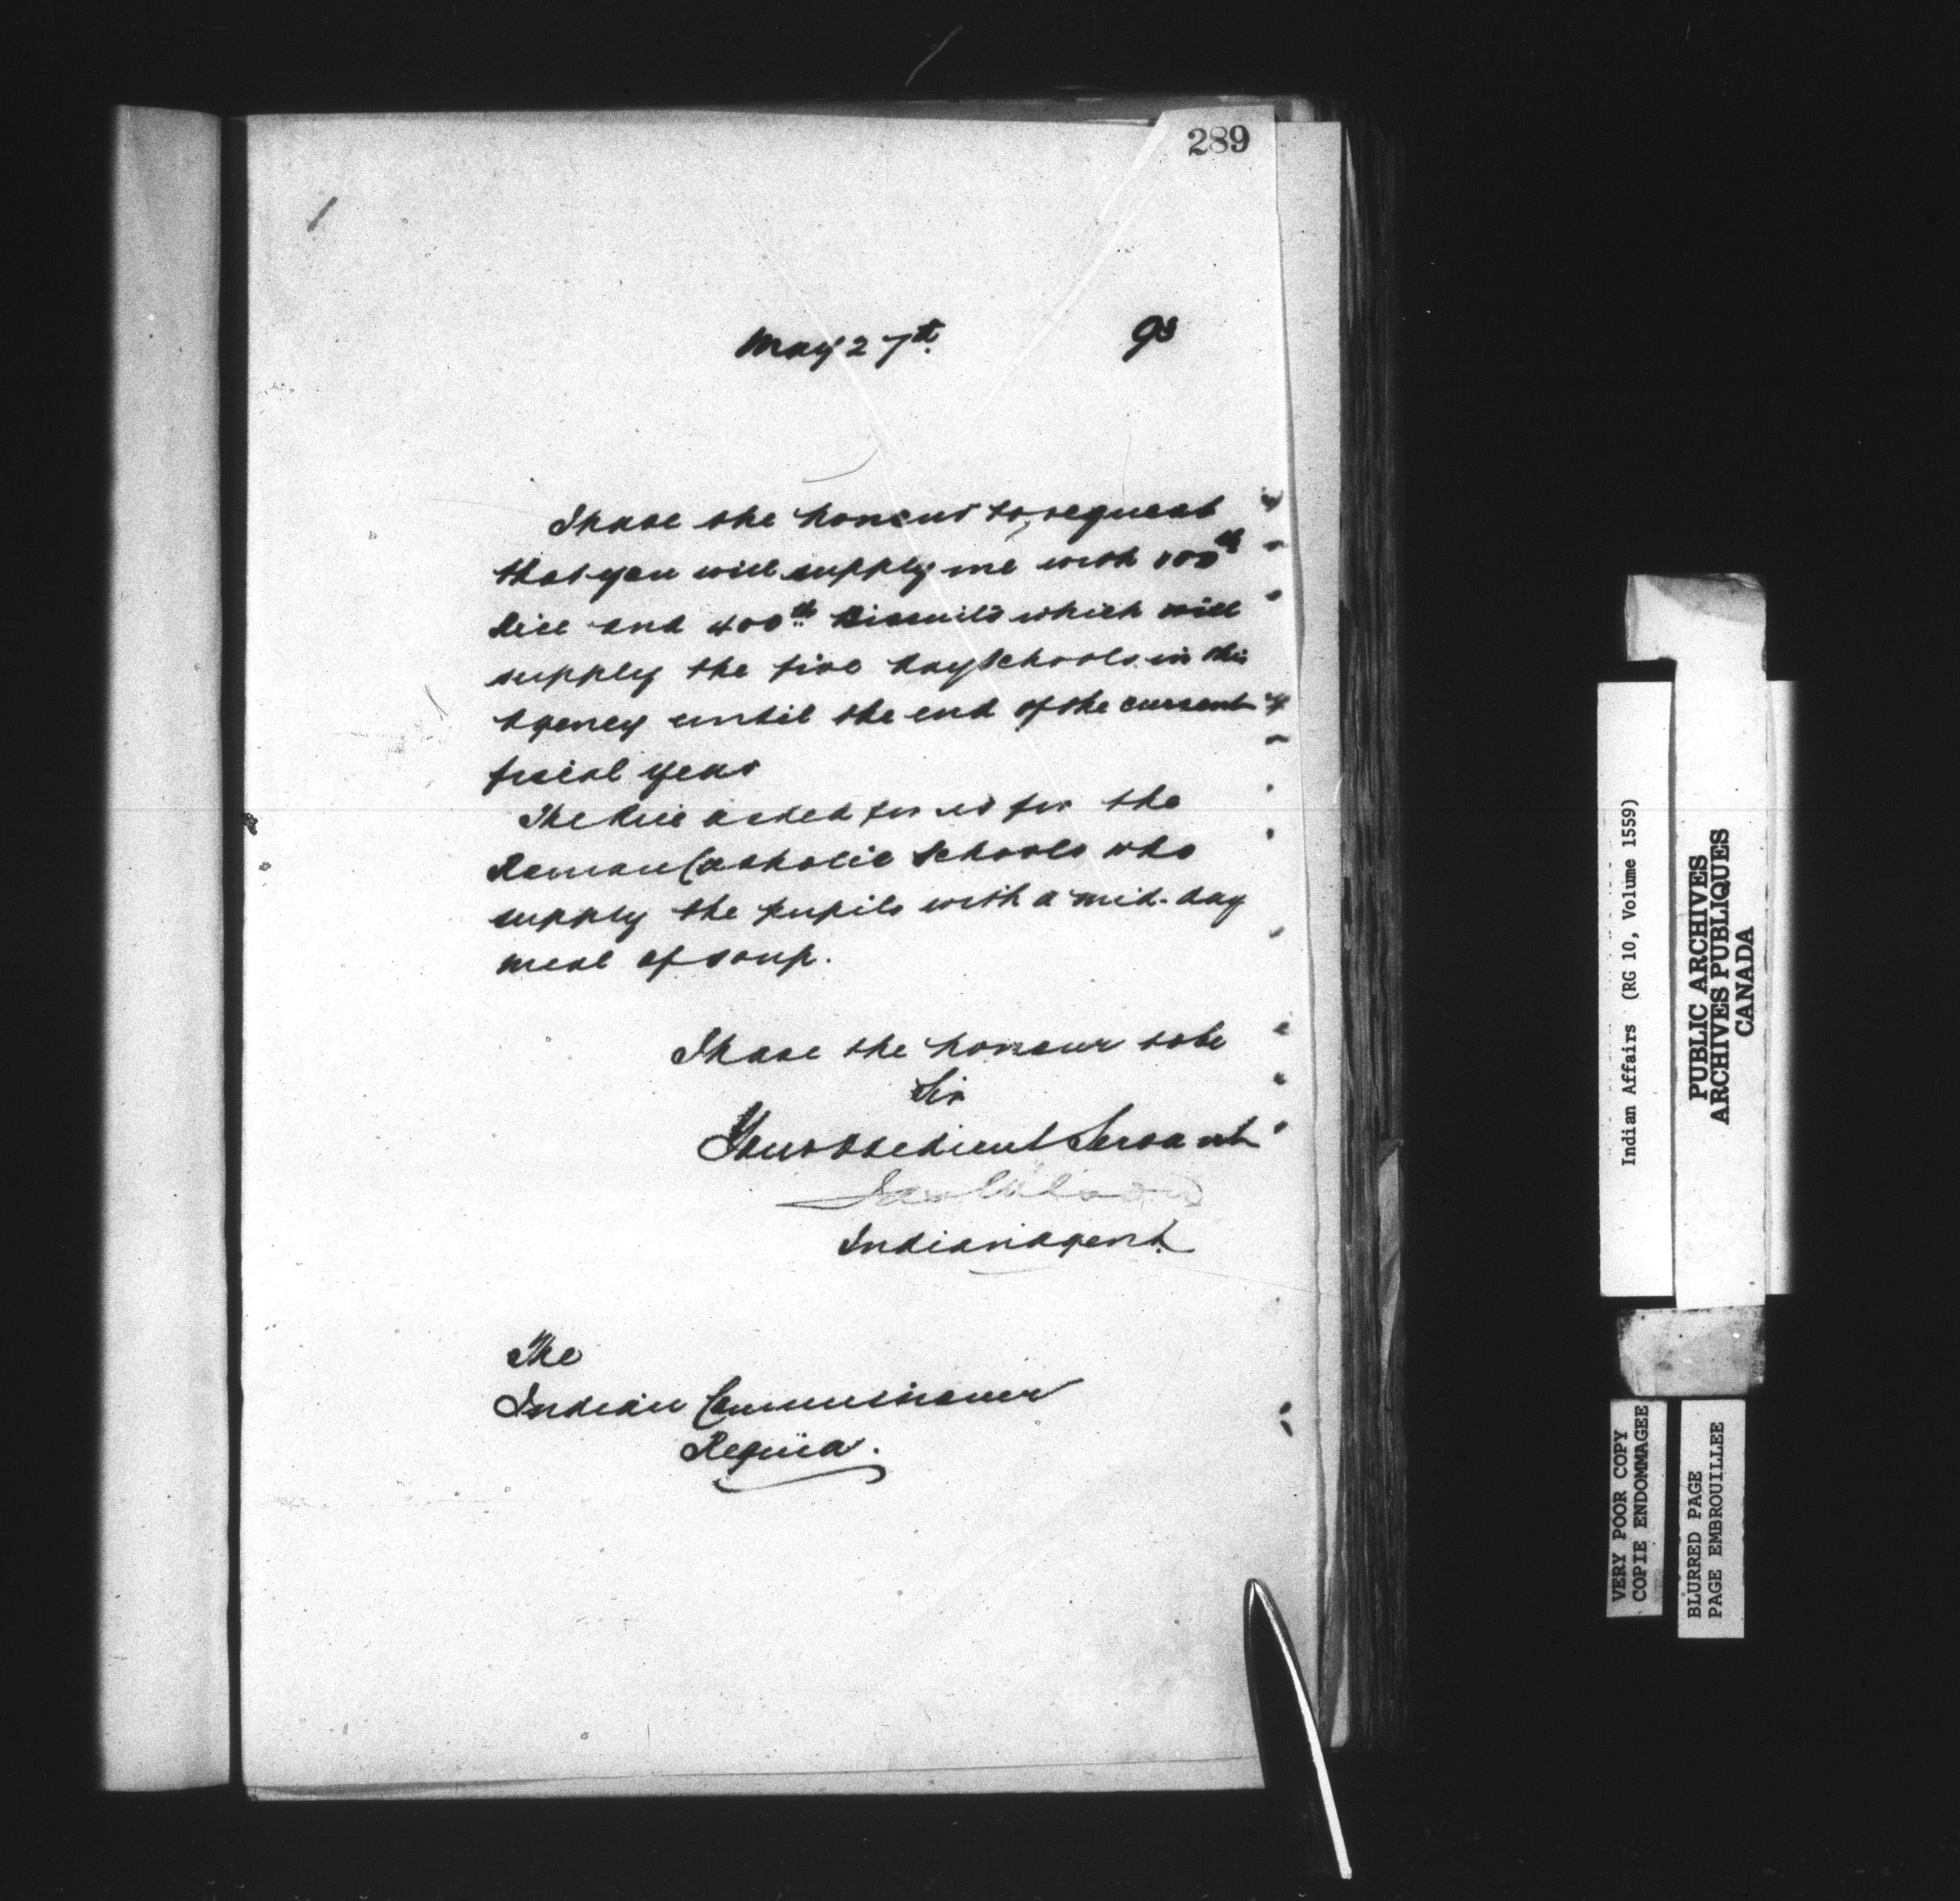 289
May 27th 93
I have the honour to request
that you will supply me with 100 lb
Rice and 400 lb Biscuits which will
supply the five day Schools in this
Agency until the end of the current
fiscal year
The Rice asked for is for the
Roman Catholic Schools who
supply the pupils with a mid-day
meal of soup.
I have the honour to be
Sir
Your Obedient Servant
Indian Agent
The
Indian Commissioner
Regina.
Indian Affairs (RG 10, Volume 1559)
PUBLIC ARCHIVES
ARCHIVES PUBLIQUES
CANADA
VERY POOR COPY
COPIE ENDOMMAGEE
BLURRED PAGE
PAGE EMBROUILLEE